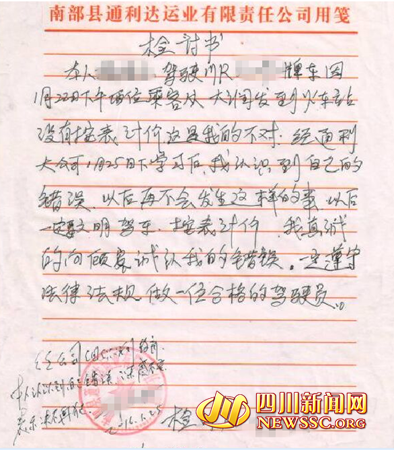 南部县通利达运业有限责任公司用笺
检讨书
本人 驾驶川R 牌车因
1月22日下午两位乘客从大润发到火车站
没有按表计价这是我的不对。经通利
大公司1月25日下学习后,我认识到自己的
错误,以后再不会发生这样的事,以后
一定文明驾车,按表计价,我真诚
的向顾客诚认我的错误。一定遵守
法律法规做一位合格的驾驶员。
经公司
本人认识到自己错误
表示
检
四川新闻网
WWW.NEWSSC.ORG